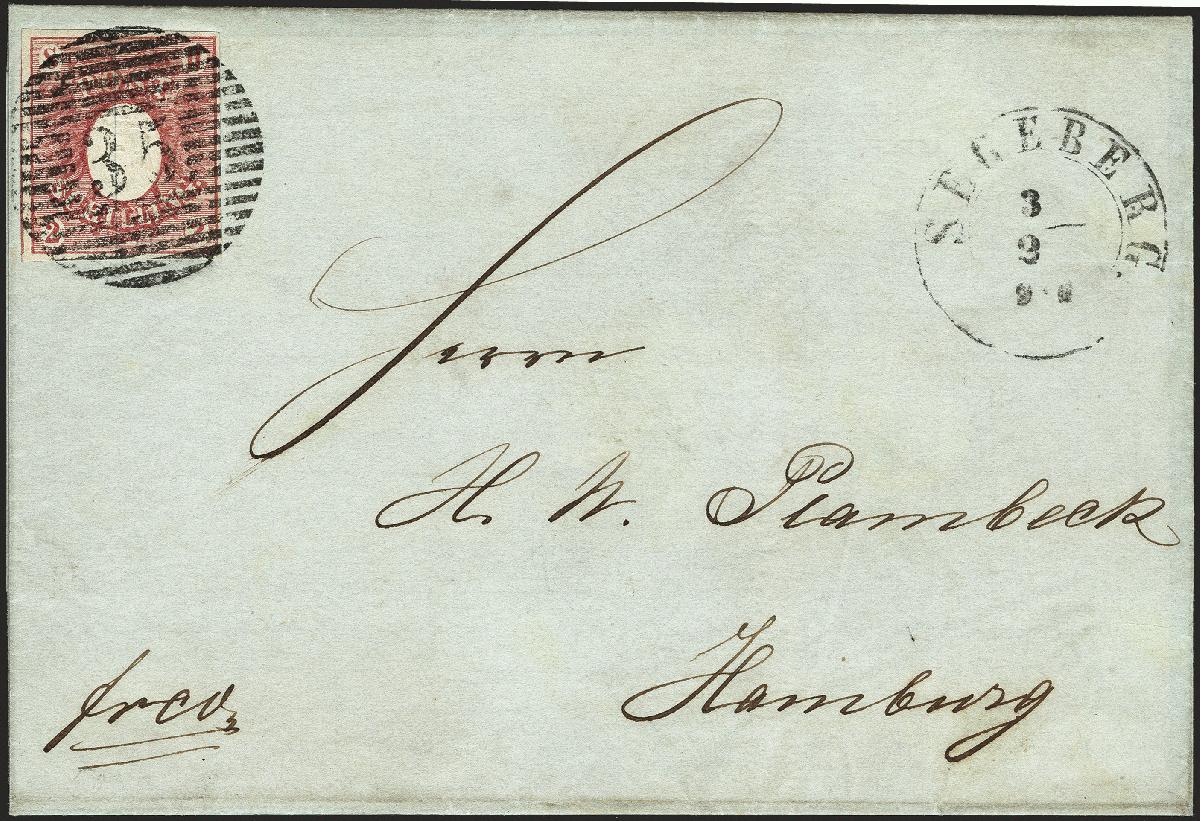 35
2
2
SEGEBERG
3
2
Herrn
H. W. Plambeck
Hamburg
frco